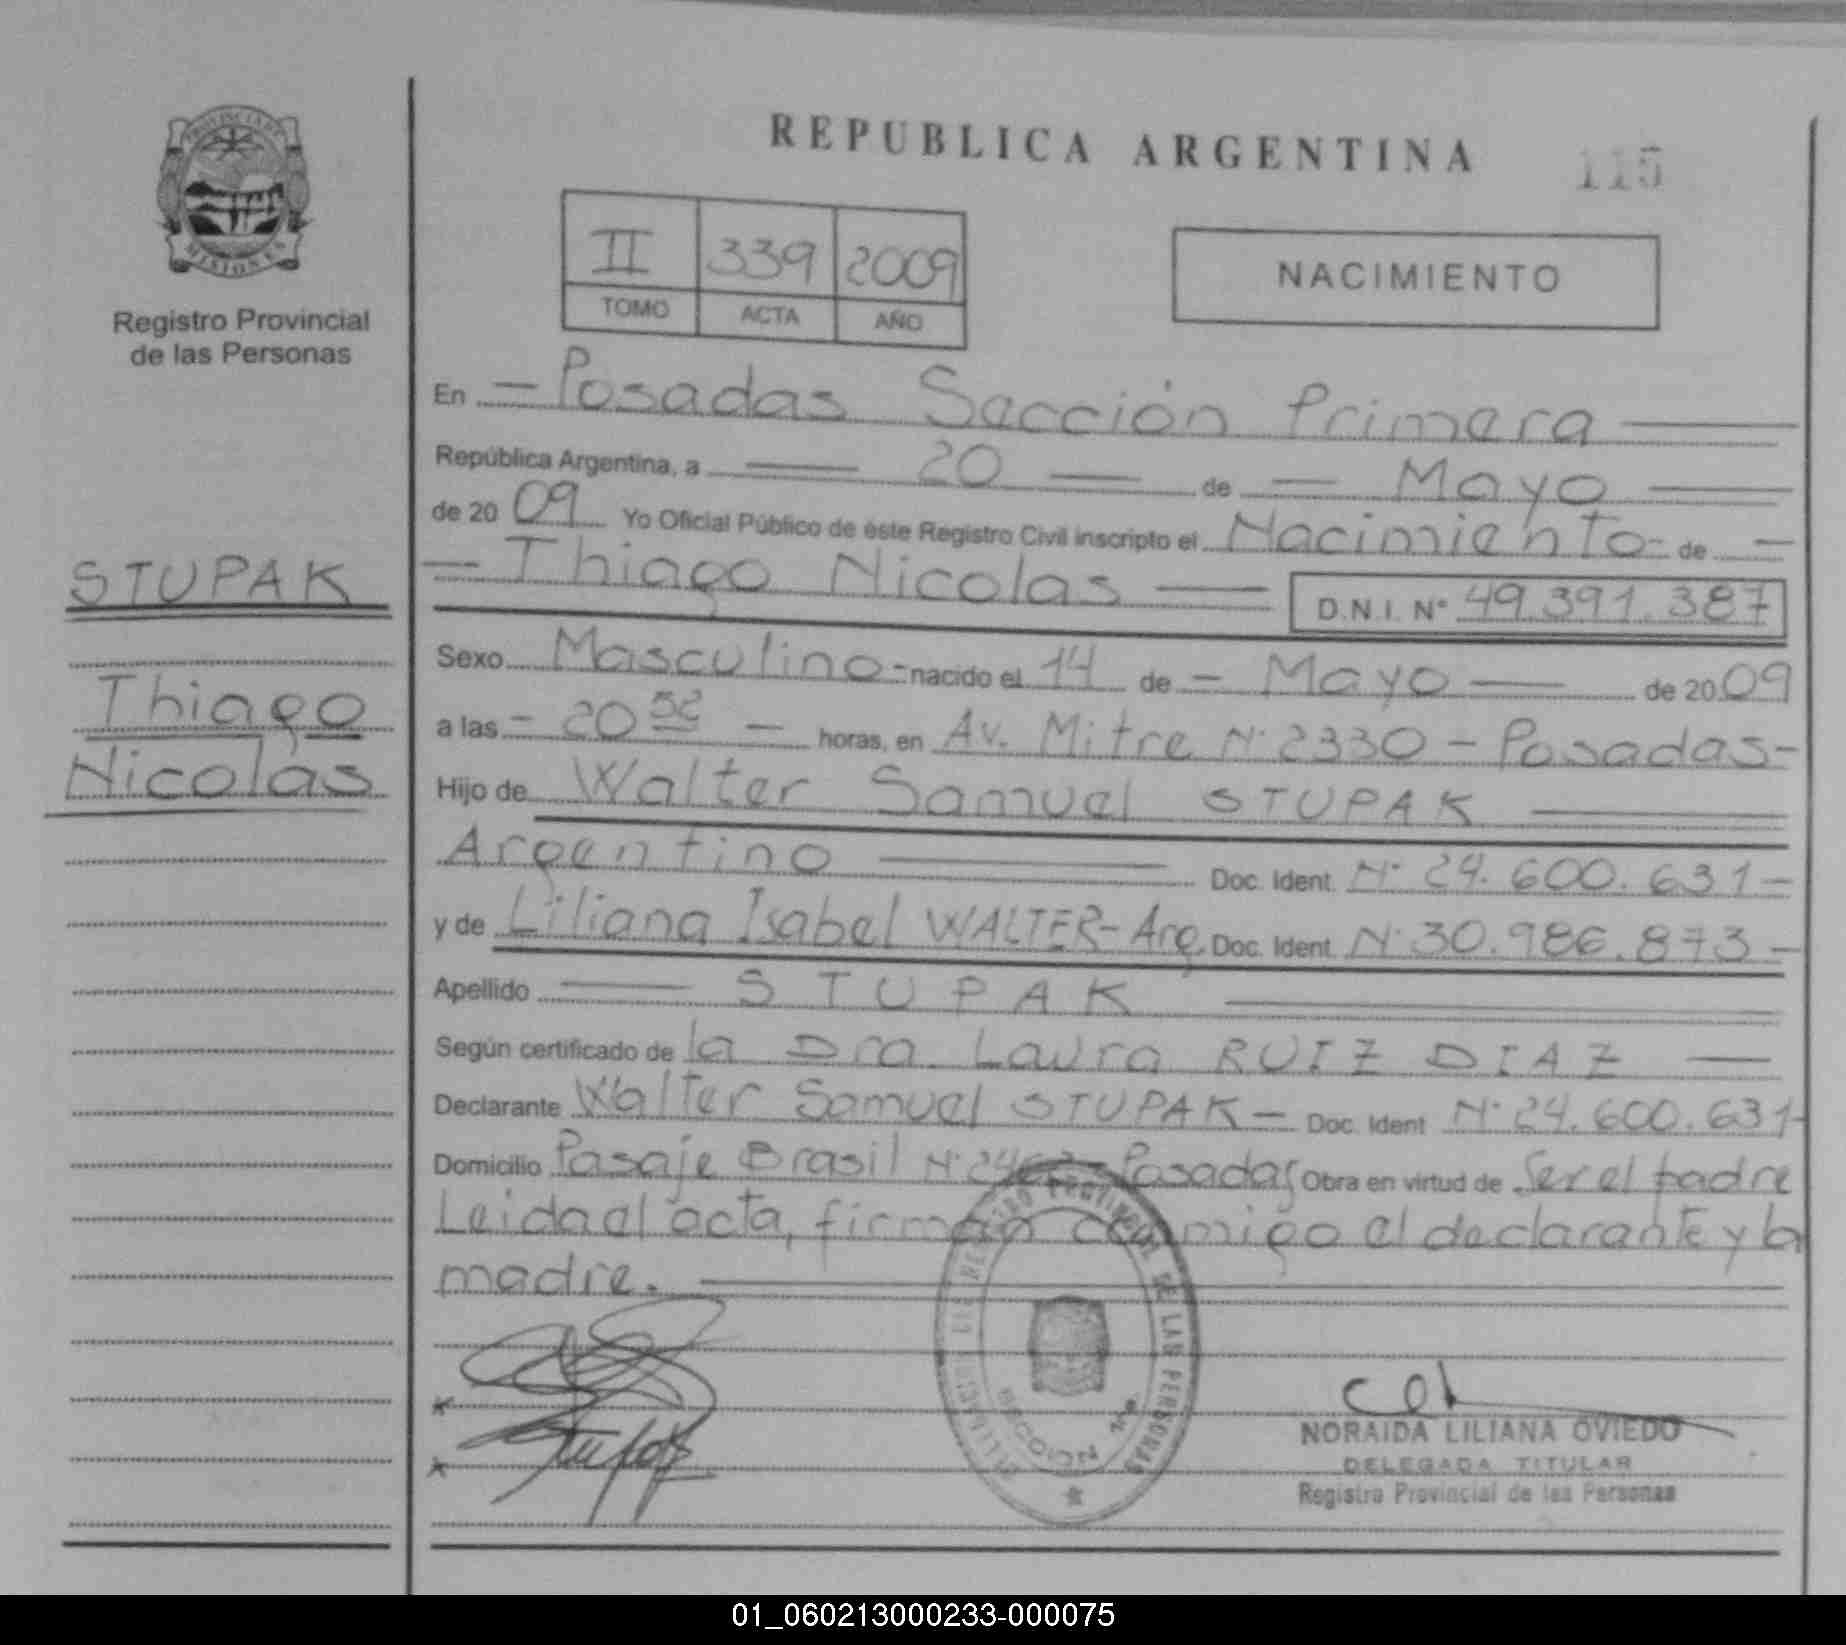 PROVINCIA DE
MISIONES
Registro Provincial
de las Personas
STUPAK
Thiago
Nicolás
REPUBLICA ARGENTINA
115
II 339 2009
TOMO ACTA AÑO
NACIMIENTO
En Posadas Sección Primera
República Argentina, a 20 de Mayo
de 2009 Yo Oficial Público de éste Registro Civil inscripto el Nacimiento de
Thiago Nicolas D.N.I. Nº 49.391.387
Sexo Masculino - nacido el 14 de - Mayo de 2009
a las - 20 52 - horas, en Av. Mitre Nº 2330 - Posadas -
Hijo de Walter Samuel STUPAK
Argentino Doc. Ident. Nº 24.600.631 -
y de Liliana Isabel WALTER - Arg. Doc. Ident. Nº 30.986.873 -
Apellido STUPAK
Según certificado de la Dra. Laura RUIZ DIAZ
Declarante Walter Samuel STUPAK - Doc. Ident Nº 24.600.631 -
Domicilio Pasaje Brasil Nº - Posadas Obra en virtud de Ser el padre
Leida el acta, firman conmigo el declarante y la
madre.
REGISTRO PROVINCIAL DE LAS PERSONAS
SECCION 1ra
NORAIDA LILIANA OVIEDO
DELEGADA TITULAR
Registro Provincial de las Personas
01_060213000233-000075